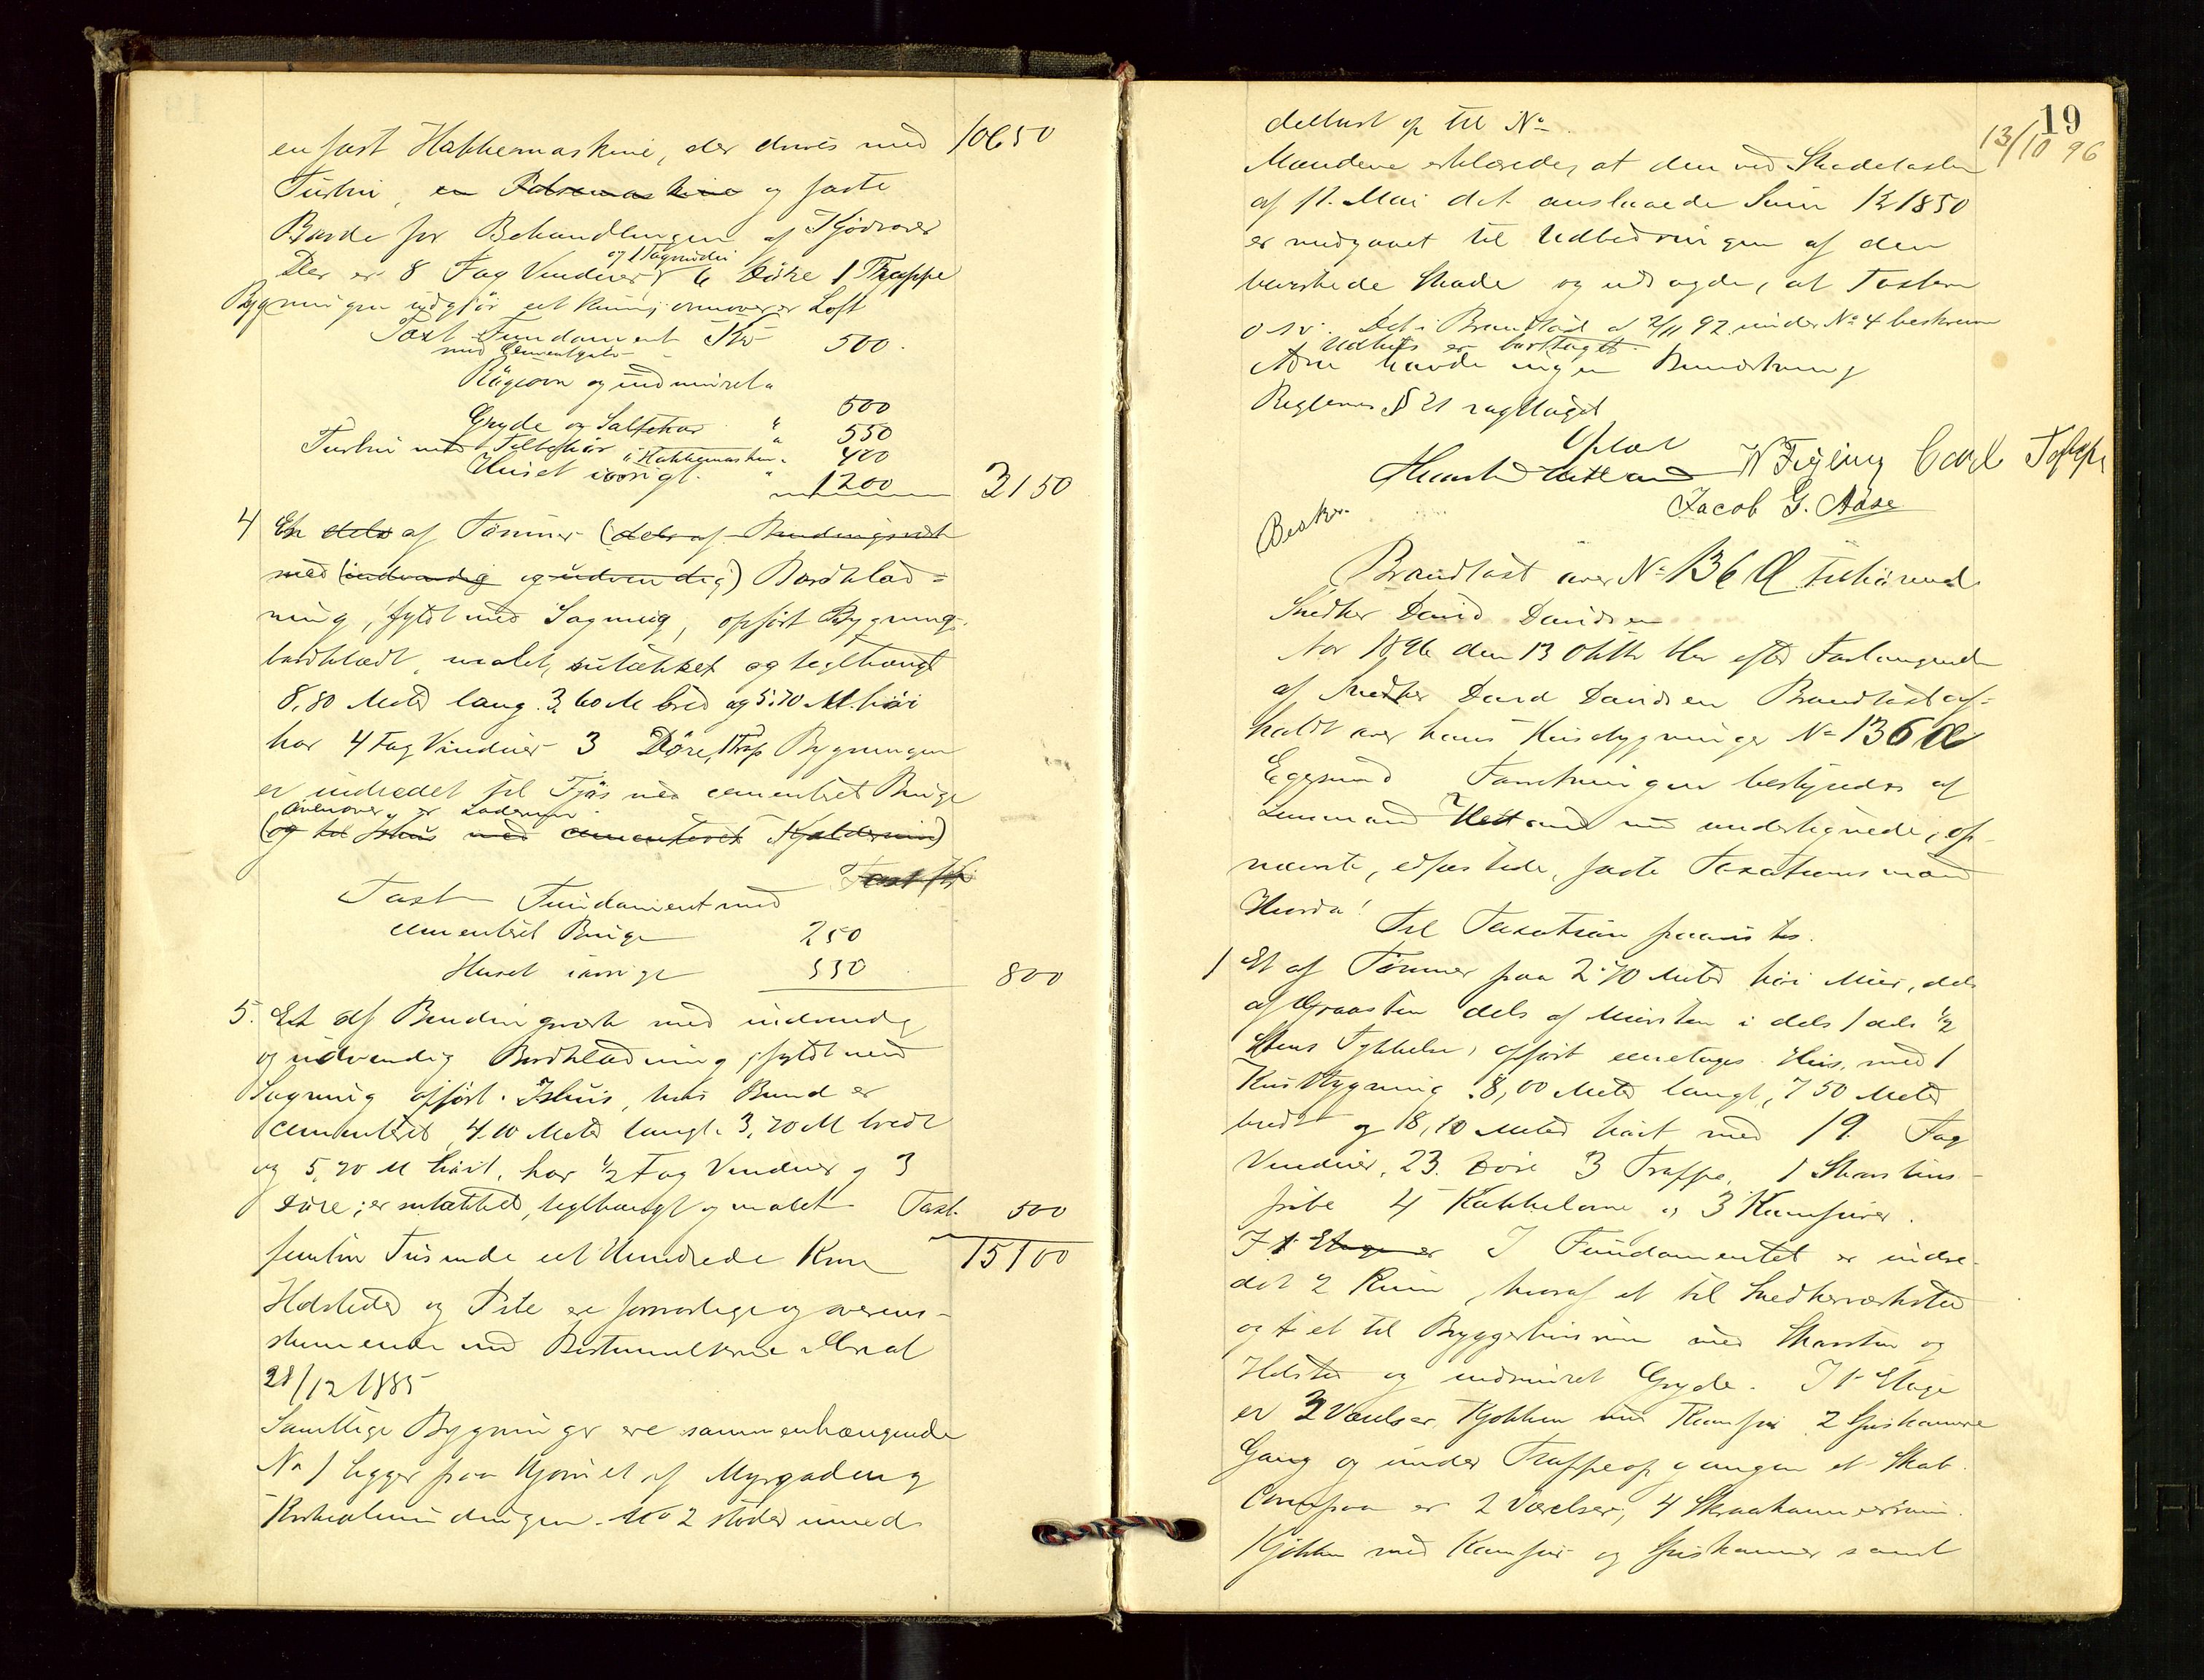 en fast Hakkemaskine, der drives med 10650
Turbin, en Pølsemaskine og faste
Borde for Behandlingen af Kjødvarer
og 1 Tagvindu
Der er 8 Fag Vinduer, 6 Døre 1 Trappe
Bygningen udgjør et Rum; ovenover er Loft
Taxt Fundament Kr 500.
med Cementgulv
Røgeovn og indmuret "
Gryde og Saltekar " 500
550
Turbin med Tilbehør i Hakkemaskin " 400
Huset iøvrigt. " 1200 3150
4 En dels af Tømmer (dels af Bindingsværk
med (indvendig og udvendig) Bordklæd=
ning, fyldt med Sagmug, opført Bygning
bordklædt, malet, sutækket og teglhængt
8,80 Meter lang. 3,60 M bred og 5.70 M. høi
har 4 Fag Vinduer 3 Døre, 1 Trap Bygningen
er indredet til Fjøs med cementeret Binge
ovenover er Laderum
(og til Ishus med cementeret Kjelderrum)
Taxt Kr
Taxt Fundament med
cementeret Binge 250
Huset iøvrigt 550 800
5. Et af Bindingsværk med indvendig
og udvendig Bordklædning, fyldt med
Sagmug opført Ishus, hvis Bund er
cementeret 4.10 Meter langt. 3,70 M bredt
og 5,70 M høit, har 1/2 Fag Vinduer og 3
Døre; er sutækket, teglhængt og malet Taxt. 500
femten Tusinde et Hundrede Kroner 15100
Ildsteder og Pibe ere forsvarlige og overens-
stemmende med Bestemmelserne i
28/12 1885
Samtlige Bygninger ere sammenhængende
No 1 ligger paa Hjørnet af Myrgaden og
No 2 støder umid
19
13/10 96
delbart op til No
Mændene erklærede, at den ved Skadetaxten
af 11. Mai det anslaaede Sum Kr 1850
er medgaaet til Udbedringen af den
bevirkede Skade og udsagde, at Taxten
o.s.v. Det i Brandtaxt af 2/11 92 under No 4 beskrevne
Udhus er borttaget.
havde ingen Bemærkning
Reglernes § 21 iagttaget
Oplæst
Hetland W Feyling Carl
Jacob G. Aase
Beskr.
Brandtaxt over No 136 a tilhørende
Snedker David Davidsen
Aar 1896 den 13 Oktbr blev efter Forlangende
af Snedker David Davidsen Brandtaxt af-
holdt over hans Husbygninger No 136 a
Egersund Forretningen bestyredes af
Lensmand Hetland med undertegnede, op-
nævnte, edfæstede, faste Taxationsmænd
Hvorda!
Til Taxation fremvistes.
1 Et af Tømmer paa 2.70 Meter høi Mur, dels
af Graasten dels af Mursten i dels 1 dels 1/2
Stens Tykkelse, opført eenetages Hus, med 1
Kvistbygning 8,00 Meter langt, 7 50 Meter
bredt og 8,10 Meter høit med 19. Fag
Vinduer, 23. Døre 3 Trappe, 1 Skorstens-
pibe 4 Kakkelovne og 3 Komfurer.
I 1 Etage er I Fundamentet er indre-
det 2 Rum, hvoraf et til Snedkerværksted
og et til Bryggerhusrum med Skorsten og
Ildsted og indmuret Gryde. I 1 Etage
er 3 Værelser, Kjøkken med Komfur 2 Spiskamre
Gang og under Trappeopgangen et Skab.
Ovenpaa er 2 Værelser, 4 Skraakammerrum.
Kjøkken med Komfur og Spiskammer samt